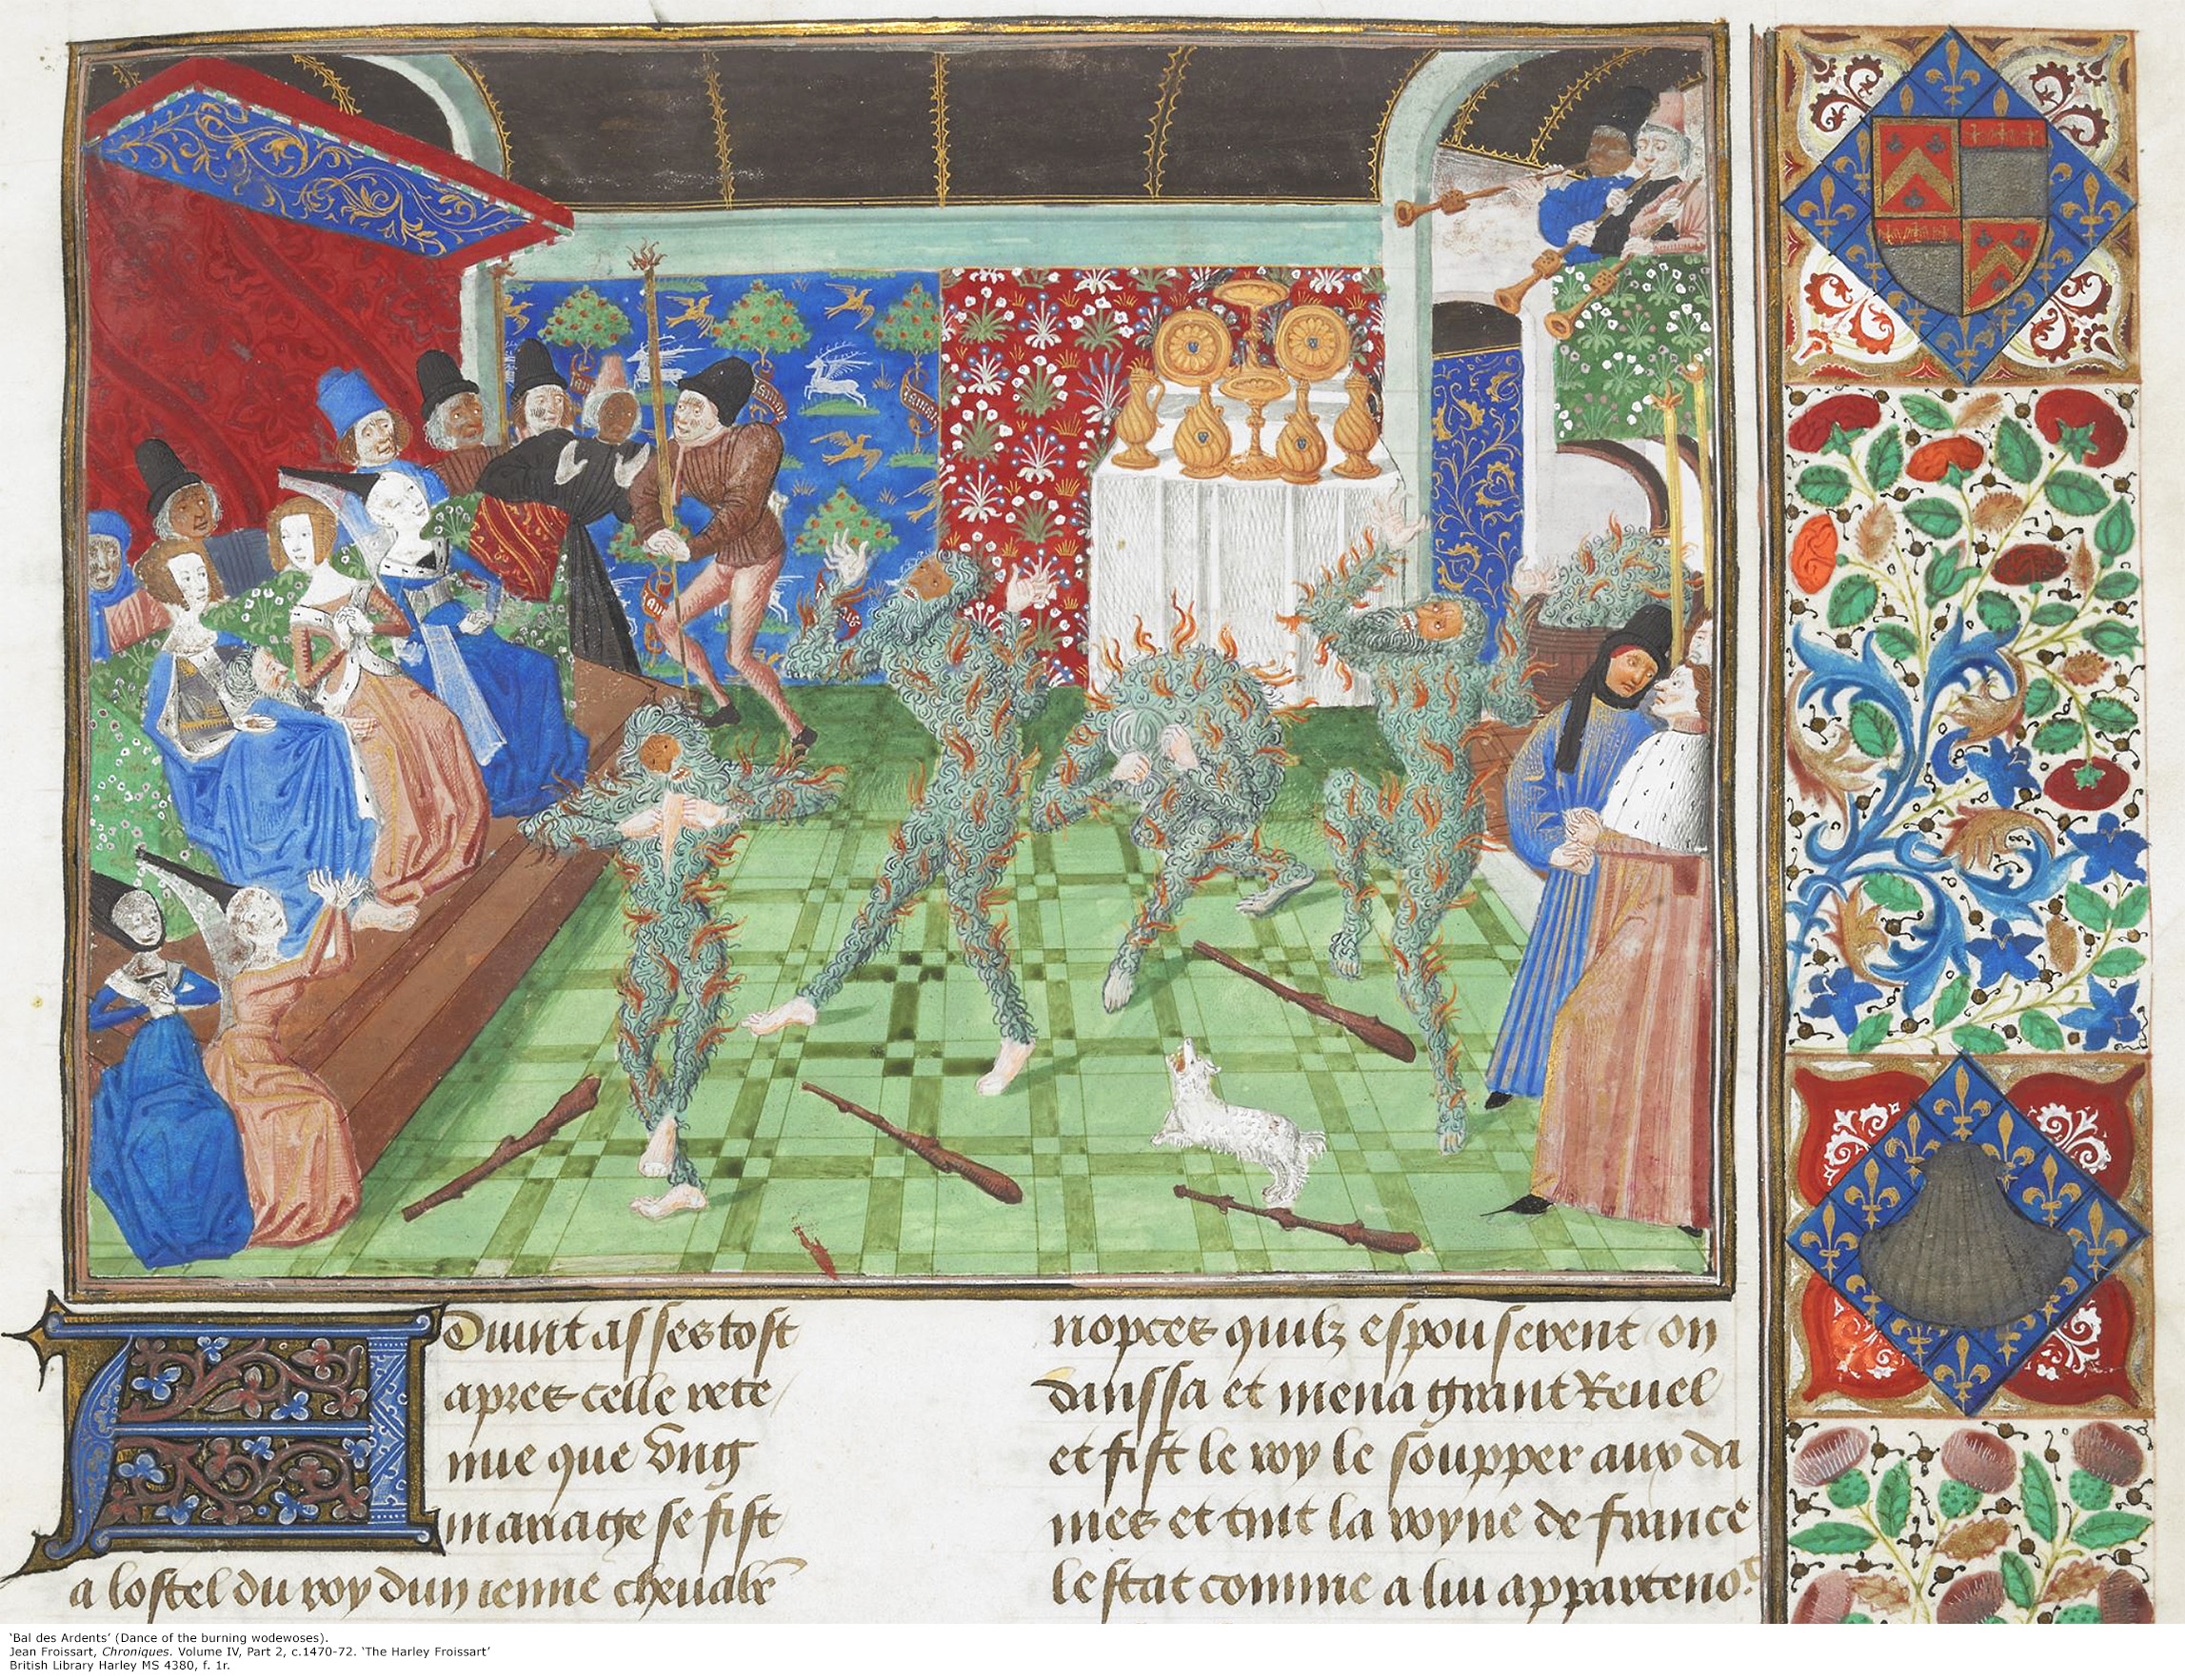 Aduint asses tost
apres celle rete
nue que vng
mariage se fist
a lostel du roy dun ieune cheualr̄
nopces quilz espouserent on
danssa et mena grant Reuel
et fist le roy le soupper aux da
mes et tint la royne de france
lestat comme a lui apparteno.t
‘Bal des Ardents’ (Dance of the burning wodewoses).
Jean Froissart, Chroniques. Volume IV, Part 2, c.1470-72. ‘The Harley Froissart’
British Library Harley MS 4380, f. 1r.